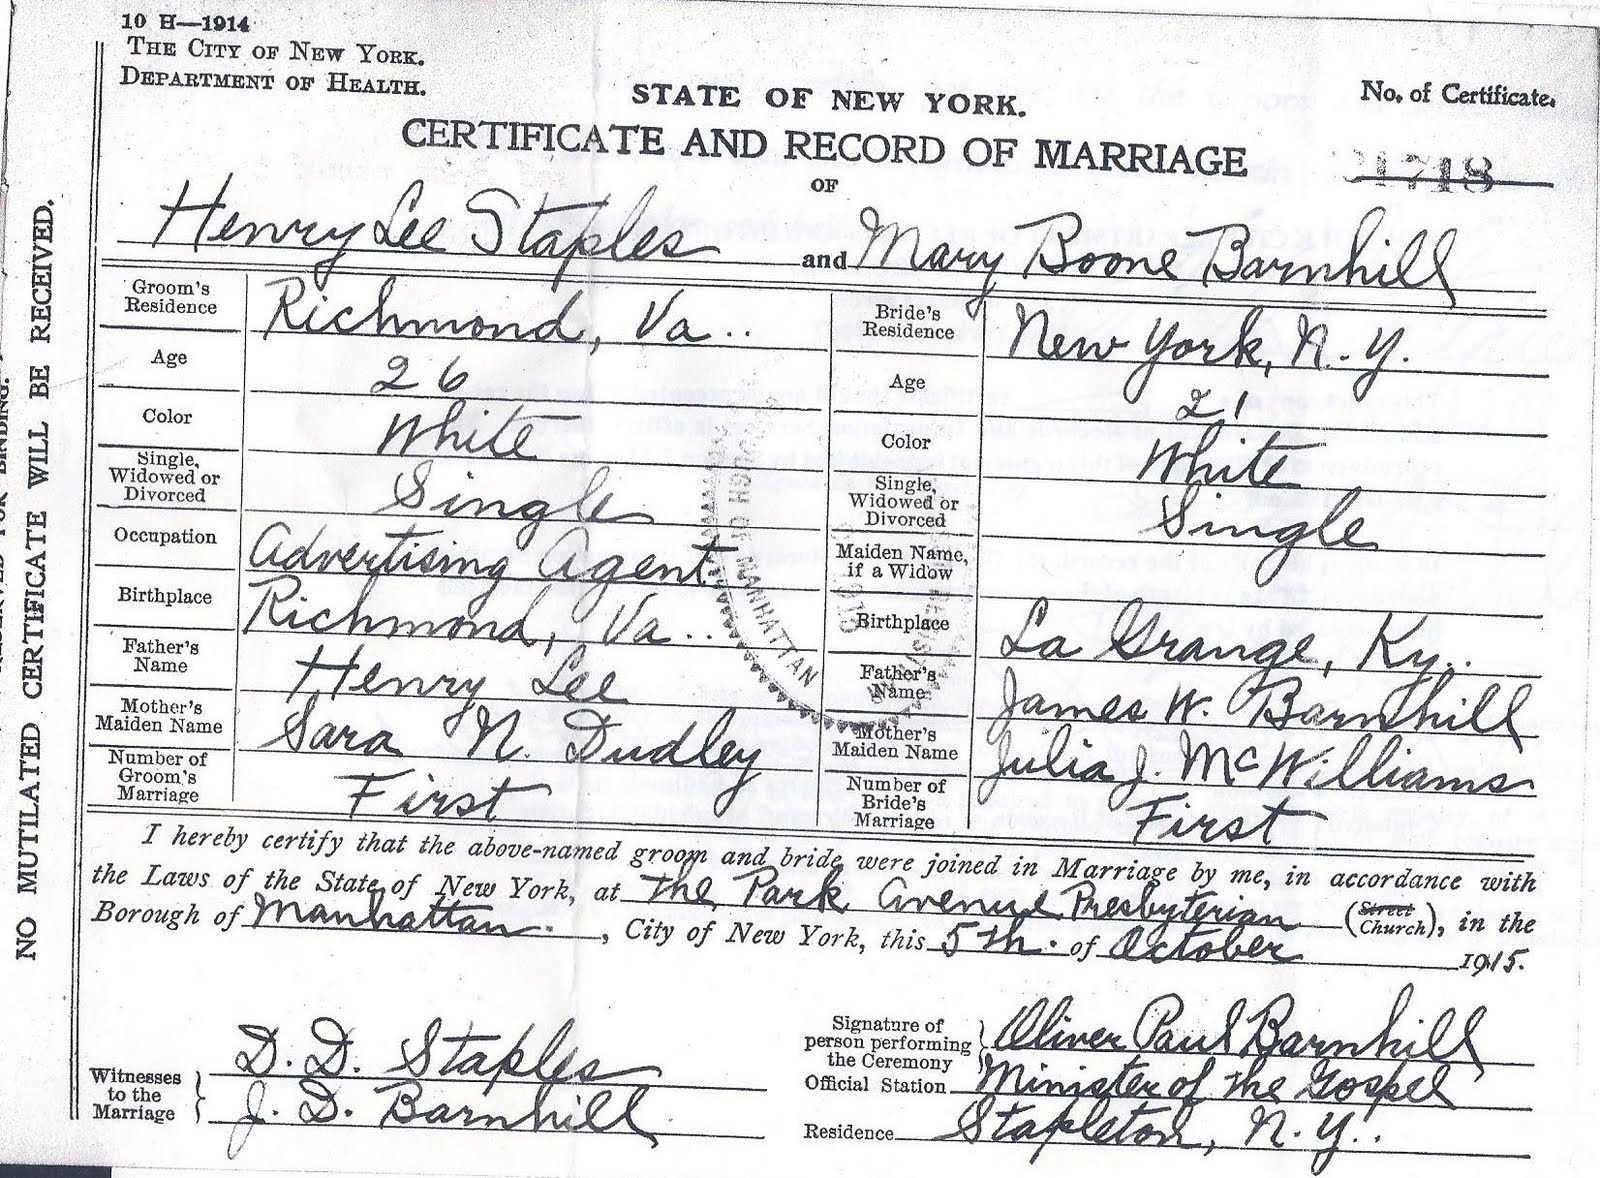 10 H—1914
THE CITY OF NEW YORK.
DEPARTMENT OF HEALTH.
STATE OF NEW YORK.
No. of Certificate.
CERTIFICATE AND RECORD OF MARRIAGE
21718
OF
Henry Lee Staples and Mary Boone Barnhill
Groom's Residence Richmond, Va..
Bride's Residence New York, N.Y.
Age 26
Age 21
Color White
Color White
Single, Widowed or Divorced Single
Single, Widowed or Divorced Single
Occupation Advertising Agent
Maiden Name, if a Widow
Birthplace Richmond, Va..
Birthplace La Grange, Ky..
Father's Name Henry Lee
Father's Name James W. Barnhill
Mother's Maiden Name Sara N. Dudley
Mother's Maiden Name Julia J. McWilliams
Number of Groom's Marriage First
Number of Bride's Marriage First
I hereby certify that the above-named groom and bride were joined in Marriage by me, in accordance with
the Laws of the State of New York, at the Park Avenue Presbyterian (Street Church), in the
Borough of Manhattan. , City of New York, this 5th. of October 1915.
Witnesses to the Marriage
D. D. Staples
J. D. Barnhill
Signature of person performing the Ceremony Oliver Paul Barnhill
Official Station Minister of the Gospel
Residence Stapleton, N.Y..
NO MUTILATED CERTIFICATE WILL BE RECEIVED.
RESERVED FOR BINDING.
OF MANHATTAN